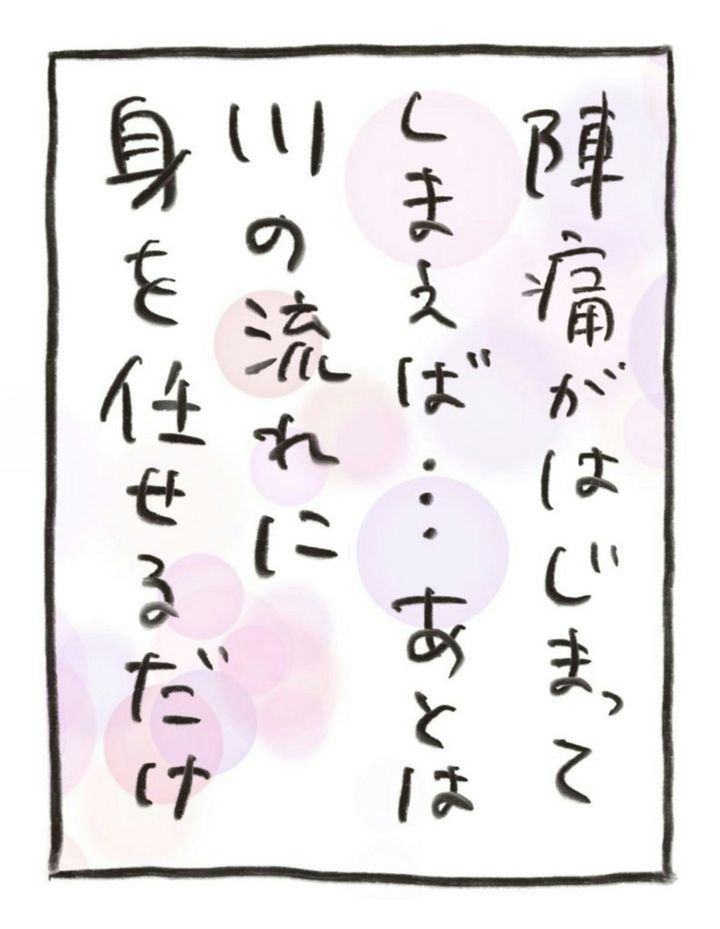 陣痛がはじまって
しまえば…あとは
川の流れに
身を任せるだけ